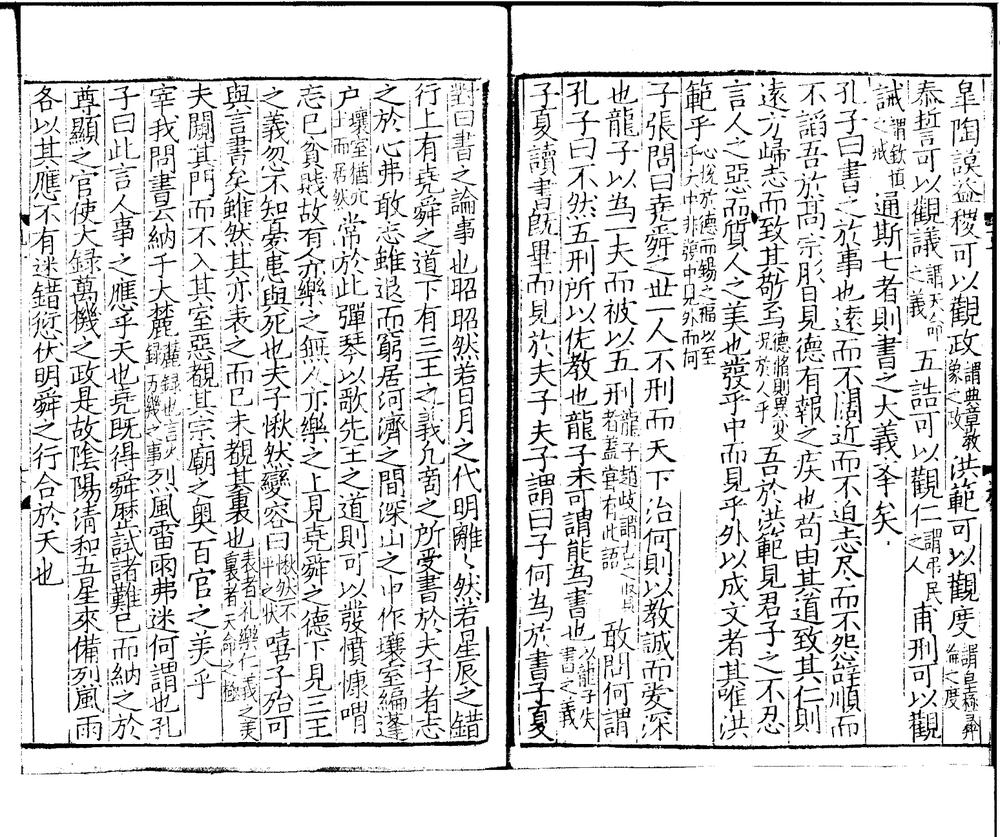 皐陶謨益稷可以觀政謂典章教象之政洪範可以觀度謂皇極彞倫之度
泰誓可以觀議謂天命之義五誥可以觀仁謂弔民之人甫刑可以觀
誡謂欽慎之戒通斯七者則書之大義夆矣
孔子曰書之於事也遠而不闊近而不迫志尽而不怨辤順而
不謟吾於高宗肜日見德有報之疾也苟由其道致其仁則
遠方歸志而致其敬焉德將則異変見於人乎吾於洪範見君子之不忍
言人之惡而質人之美也發乎中而見乎外以成文者其唯洪
範乎心悅於德而錫之福以至乎大中非發中見外而何
子張問曰堯舜之世一人不刑而天下治何則以教誠而爱深
也龍子以為一夫而被以五刑龍子趙岐謂古之賢者盖甞有此語敢問何謂
孔子曰不然五刑所以佐教也龍子未可謂能為書也以龍子失書之義
子夏讀書旣畢而見於夫子夫子謂曰子何為於書子夏
對曰書之論事也昭昭然若日月之代明離〻然若星辰之錯
行上有堯舜之道下有三王之義凢啇之所受書於夫子者志
之於心弗敢忘雖退而窮居河濟之間深山之中作壤室編蓬
户壤室猶穴土而居然常於此彈琴以歌先王之道則可以發憤慷喟
忘已貧賎故有人亦樂之無人亦樂之上見堯舜之德下見三王
之義忽不知憂患與死也夫子愀然變容曰愀然不平之状嘻子殆可
與言書矣雖然其亦表之而已未覩其裏也表者礼樂仁義之美裏者天命之極
夫闚其門而不入其室惡覩其宗廟之奧百官之美乎
宰我問書云納于大麓麓録也言大録万機之事烈風雷雨弗迷何謂也孔
子曰此言人事之應乎天也堯既得舜歷試諸難已而納之於
尊顯之官使大録萬機之政是故隂陽清和五星來備列風雨
各以其應不有迷錯愆伏明舜之行合於天也